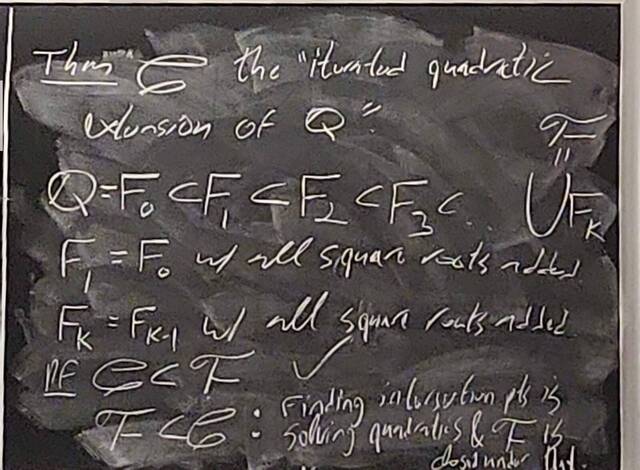 Thm C the "iterated quadratic
extension of Q"
F
=
Q=F₀ ⊂ F₁ ⊂ F₂ ⊂ F₃ ⊂ .. ∪Fₖ
F₁ = F₀ w/ all square roots added
Fₖ = Fₖ₋₁ w/ all square roots added
pf C ⊂ F ✓
F ⊂ C : Finding intersection pts is
solving quadratics & F is
closed under